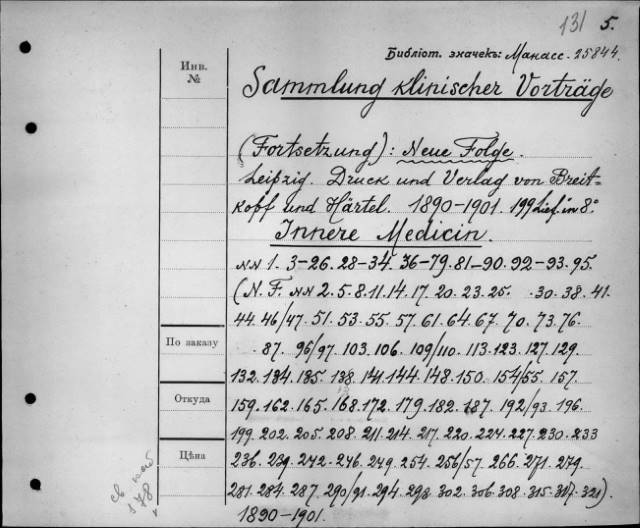 131 5.
Библіот. значекъ: Манасс. 25844.
Инв.
№
Sammlung klinischer Vorträge
(Fortsetzung): Neue Folge.
Leipzig. Druck und Verlag von Breit=
kopf und Härtel. 1890-1901. 199 Lief. in 8°
Innere Medicin.
NN 1. 3-26. 28-34. 36-79. 81-90. 92-93. 95.
(N. F. NN 2. 5. 8. 11. 14. 17. 20. 23. 25. 30. 38. 41.
44. 46/47. 51. 53. 55. 57. 61. 64. 67. 70. 73. 76.
По заказу
87. 96/97. 103. 106. 109/110. 113. 123. 127. 129.
132. 134. 135. 138. 141. 144. 148. 150. 154/55. 157.
Откуда
159. 162. 165. 168. 172. 179. 182. 187. 192/93. 196.
199. 202. 205. 208. 211. 214. 217. 220. 224. 227. 230. 233
Цѣна
236. 239. 242. 246. 249. 254. 256/57. 266. 271. 279.
281. 284. 287. 290/91. 294. 298. 302. 306. 308. 315. 317. 321).
1890-1901.